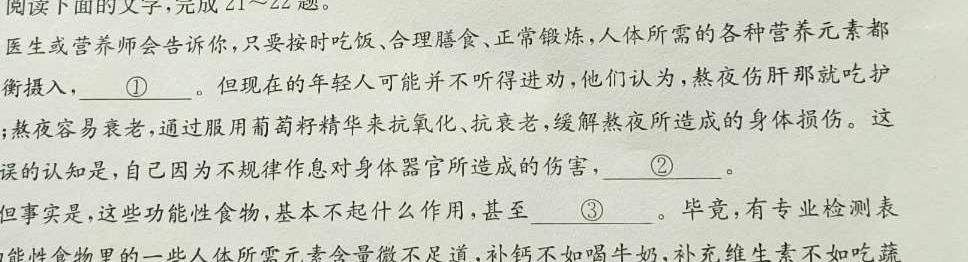 阅读下面的文字,完成21~22题。
医生或营养师会告诉你,只要按时吃饭、合理膳食、正常锻炼,人体所需的各种营养元素都
衡摄入,①。但现在的年轻人可能并不听得进劝,他们认为,熬夜伤肝那就吃护
;熬夜容易衰老,通过服用葡萄籽精华来抗氧化、抗衰老,缓解熬夜所造成的身体损伤。这
误的认知是,自己因为不规律作息对身体器官所造成的伤害,②。
但事实是,这些功能性食物,基本不起什么作用,甚至③。毕竟,有专业检测表
能性食物里的一些人体所需元素含量微不足道,补钙不如喝牛奶,补充维生素不如吃蔬